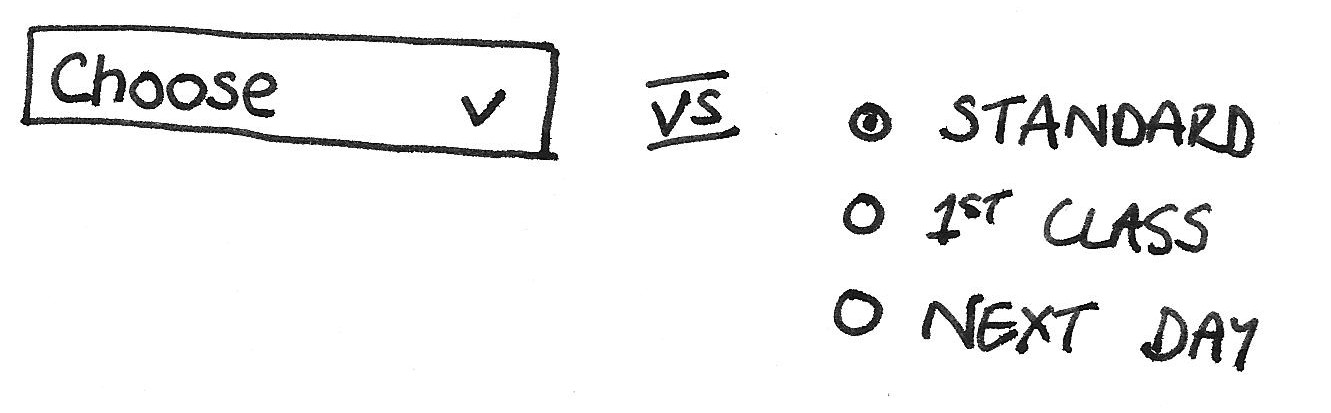 Choose
VS
STANDARD
1ST CLASS
NEXT DAY